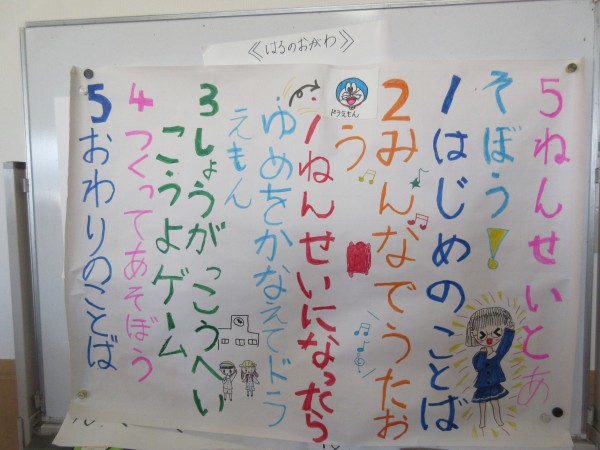 《はるのおがわ》
5ねんせいとあ
そぼう!
1はじめのことば
2みんなでうたお
う
・1ねんせいになったら
ドラえもん
ゆめをかなえてドラ
えもん
3しょうがっこうへい
こうよゲーム
4つくってあそぼう
5おわりのことば